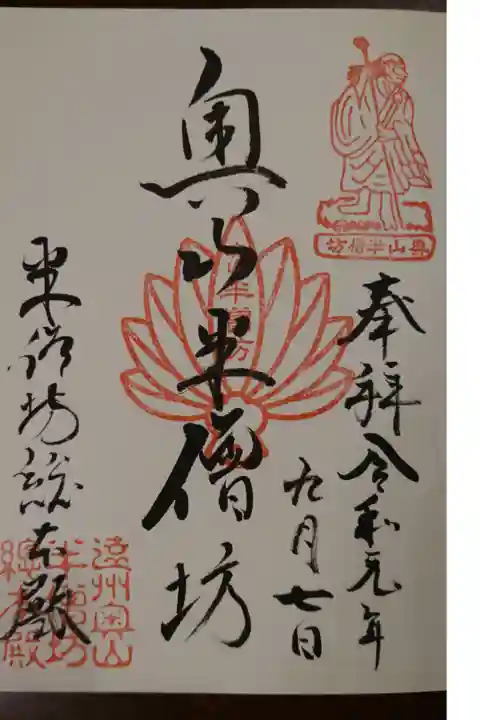 奉拝 令和元年
九月七日
奥山半僧坊
半僧坊総本殿
奥山半僧坊
半僧坊
遠州奥山
半僧坊
總本殿